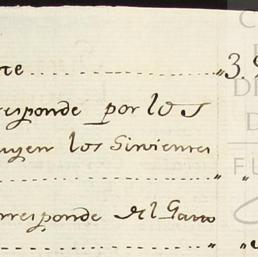 te.................„3.9
responde por los
uyen los Sirvientes
.................„ „
orresponde al Gano
.................„ „
FU